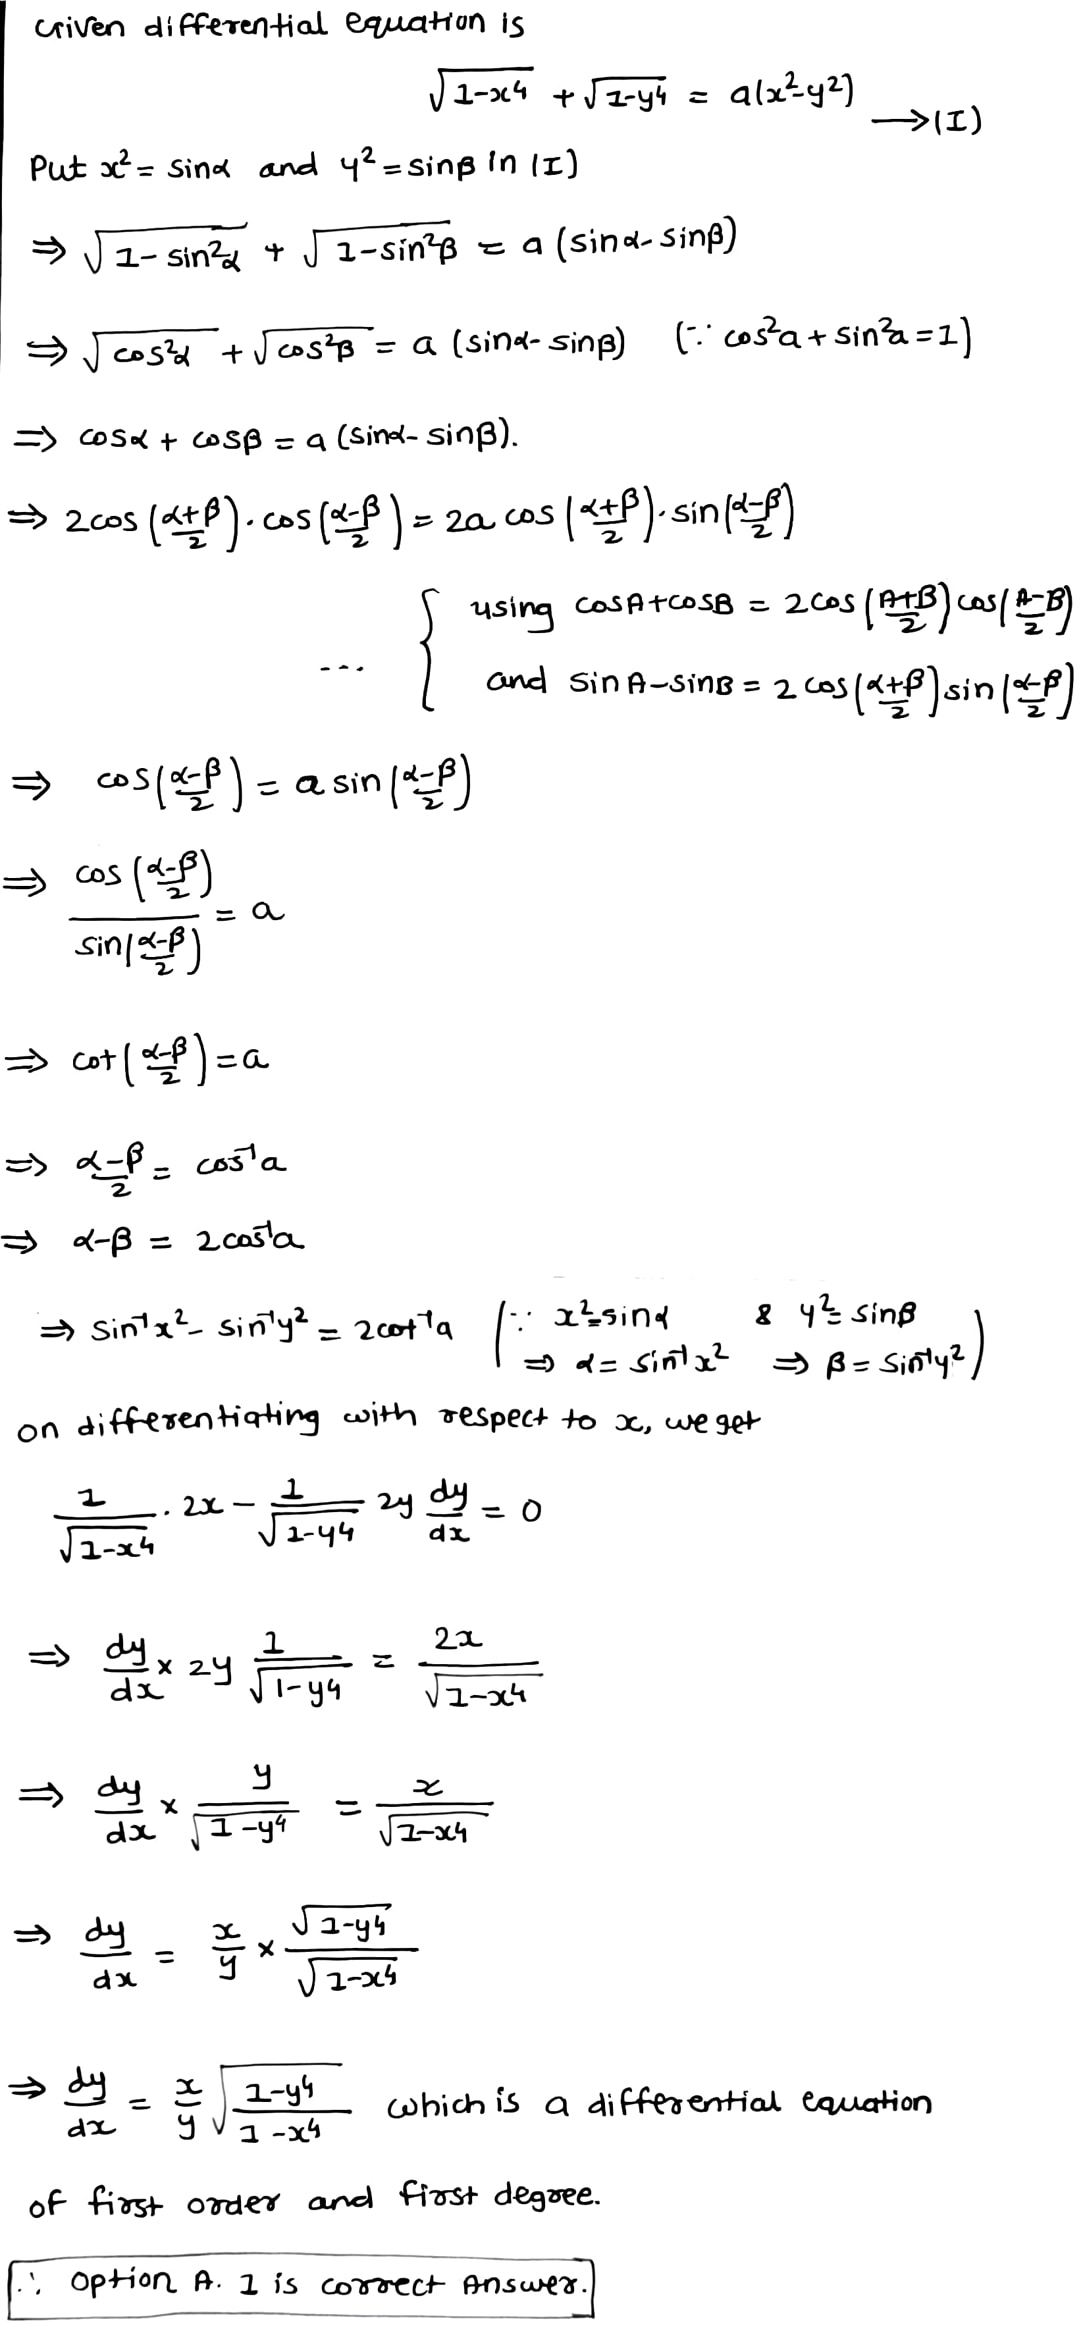 Given differential equation is
√(1-x⁴) + √(1-y⁴) = a(x²-y²) ⟶(I)
Put x² = sinα and y² = sinβ in (I)
⇒ √(1-sin²α) + √(1-sin²β) = a (sinα-sinβ)
⇒ √(cos²α) + √(cos²β) = a (sinα-sinβ) (∵ cos²a + sin²a = 1)
⇒ cosα + cosβ = a (sinα-sinβ).
⇒ 2cos((α+β)/2)·cos((α-β)/2) = 2a cos((α+β)/2)·sin((α-β)/2)
using cosA+cosB = 2cos((A+B)/2)cos((A-B)/2)
... {
and sinA-sinB = 2cos((α+β)/2)sin((α-β)/2)
⇒ cos((α-β)/2) = a sin((α-β)/2)
⇒ cos((α-β)/2)/sin((α-β)/2) = a
⇒ cot((α-β)/2) = a
⇒ (α-β)/2 = cos⁻¹a
⇒ α-β = 2cos⁻¹a
⇒ sin⁻¹x² - sin⁻¹y² = 2cot⁻¹a (∵ x²=sinα & y²=sinβ
⇒ α = sin⁻¹x² ⇒ β = sin⁻¹y²)
on differentiating with respect to x, we get
1/√(1-x⁴) · 2x - 1/√(1-y⁴) 2y dy/dx = 0
⇒ dy/dx × 2y 1/√(1-y⁴) = 2x/√(1-x⁴)
⇒ dy/dx × y/√(1-y⁴) = x/√(1-x⁴)
⇒ dy/dx = x/y × √(1-y⁴)/√(1-x⁴)
⇒ dy/dx = x/y √((1-y⁴)/(1-x⁴)) which is a differential equation
of first order and first degree.
∴ Option A. 1 is correct Answer.